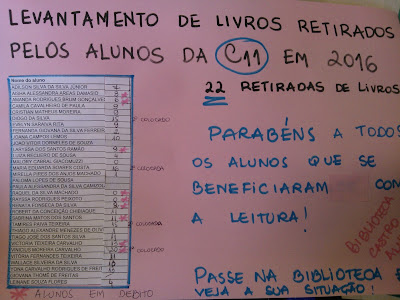 LEVANTAMENTO DE LIVROS RETIRADOS
PELOS ALUNOS DA C11 EM 2016
22 RETIRADAS DE LIVROS
Nome do aluno
ADILSON DA SILVA DA SILVA JÚNIOR
AGHA ALESSANDRA AREAS DAMASIO
AMANDA RODRIGUES BRUM GONÇALVES
CAMILA CAVALHEIRO DE PAULA
CRISTIAN MATHEUS MOREIRA
DIOGO DA SILVA
EVELYN SARAIVA RITA
FERNANDA GIOVANA DA SILVA FERREIRA
IOANA CAMPOS LEMOS
JOÃO VITOR DORNELES DE SOUZA
LARYSSA DOS SANTOS RAMÃO
LUIZA REGLIERO DE SOUSA
MALORY CABRAL GIACOMUZZI
MARIA EDUARDA SOARES COSTA
MIRELLA PIRES DOS ANJOS MACHADO
PALOMA LOPES DE SOUSA
PAULA ALESSANDRA DA SILVA
RAQUEL DA SILVA MACHADO
RAYSSA RODRIGUES PEIXOTO
RENATA FONSECA DA SILVA
ROBERT DA CONCEIÇÃO CHADIAQUE
SABRINA MATOS DOS SANTOS
TAMIRES PAIVA TEIXEIRA
THIAGO ALEXANDRE MENEZES DE
TIAGO JOSÉ DOS SANTOS DA SILVA
VICTORIA TEIXEIRA CARVALHO
VINICIUS MOREIRA CARVALHO
VITÓRIA FERNANDES TEIXEIRA
WALLACE SILVEIRA DA SILVA
YONA CARVALHO RODRIGUES DE FREITAS
YOHANA THOMÉ DE FREITAS
LEINANE SOUZA FLORES
2º COLOCADO
1ª COLOCADA
3º COLOCADO
PARABÉNS A TODOS
OS ALUNOS QUE SE
BENEFICIARAM COM
A LEITURA!
BIBLIOTECA
CASTRO
PASSE NA BIBLIOTECA E
VEJA A SUA SITUAÇÃO!
* ALUNOS EM DÉBITO